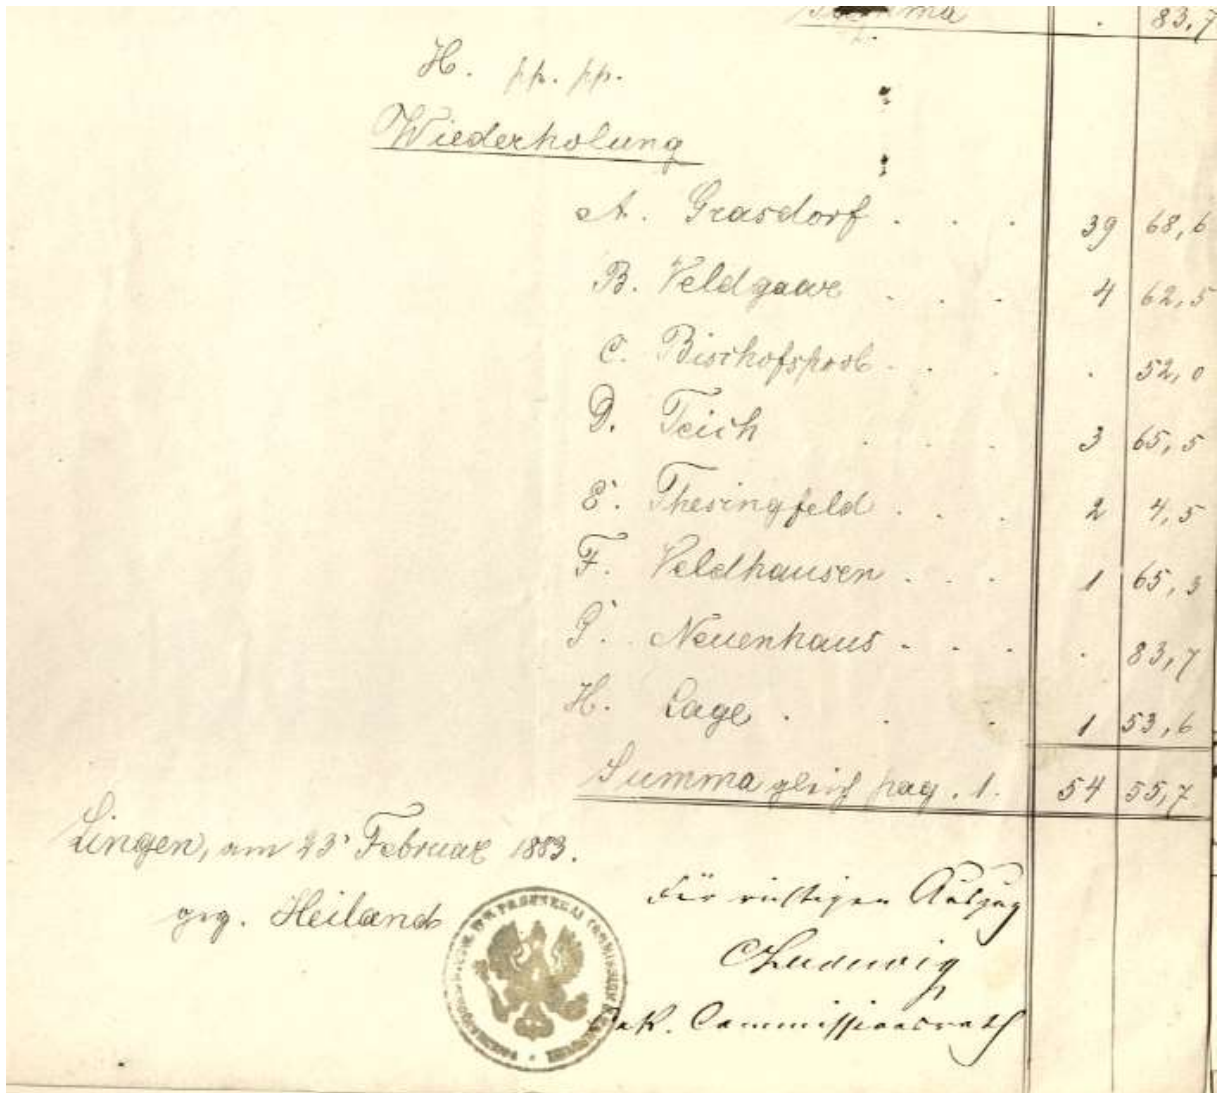 Summa . 83,7
H. pp. pp.
Wiederholung
A. Grasdorf . . . 39 68,6
B. Veldgaar . . . 4 62,5
C. Bischofspool . . . . 52,0
D. Teich . . . 3 65,5
E. Thesingfeld . . . 2 4,5
F. Veldhausen . . . 1 65,3
G. Neuenhaus . . . . 83,7
H. Lage . . . 1 53,6
Summa gleich pag. 1. 54 55,7
Lingen, am 23t Februar 1883.
gez. Heiland
Für richtigen Auszug
CLudwig
Commissionsrath